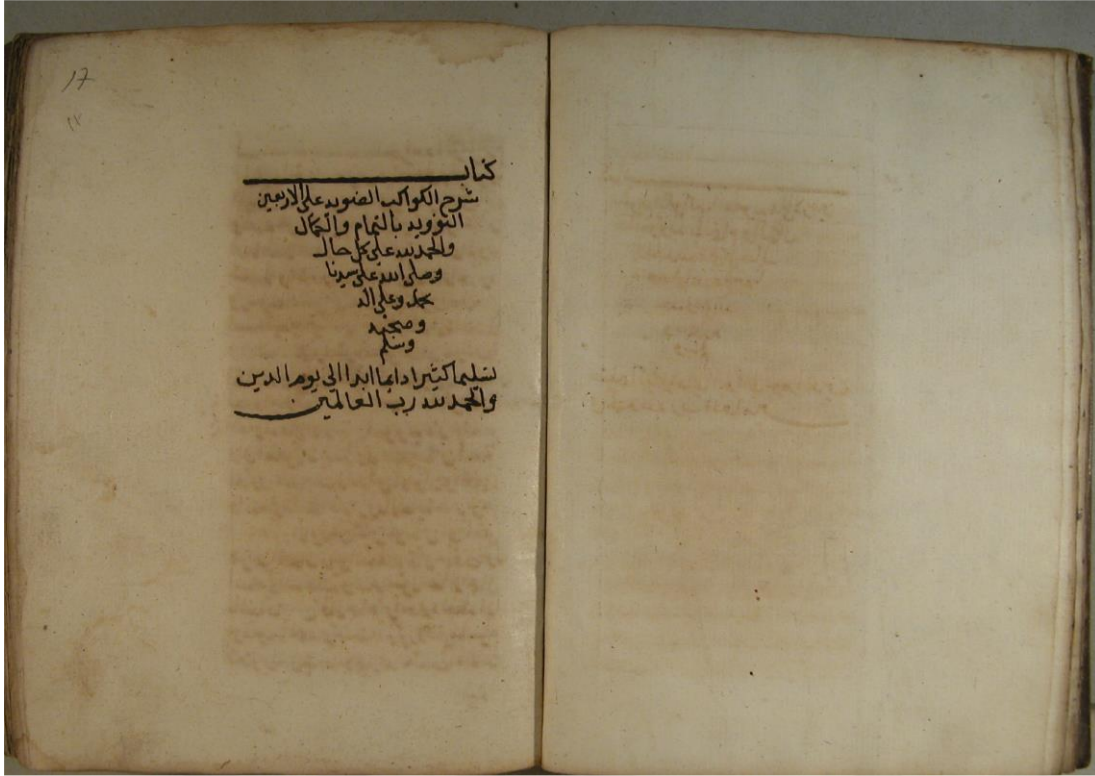 17
١٧
كتاب
شرح الكواكب الضويه على الاربعين
النوويه بالتمام والكمال
والحمد لله على كل حال
وصلى الله على سيدنا
محمد وعلى اله
وصحبه
وسلم
تسليما كثيرا دايما ابدا الي يوم الدين
والحمد لله رب العالمين